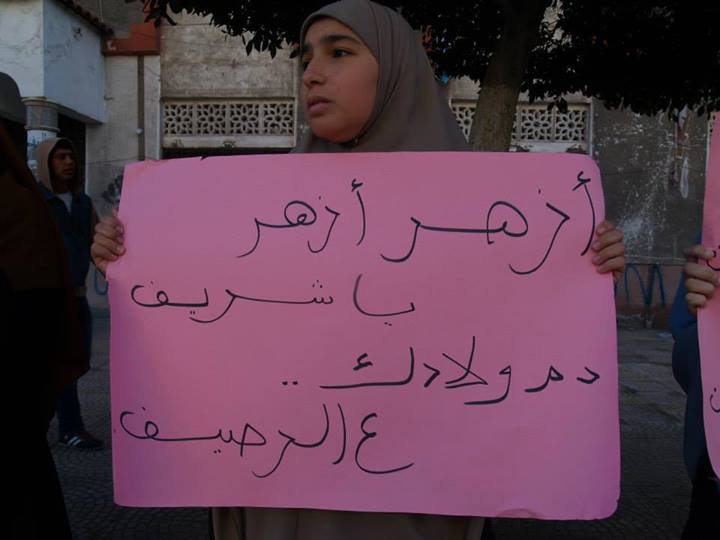 أزهر أزهر
يا شريف
دم ولادك ..
ع الرصيف